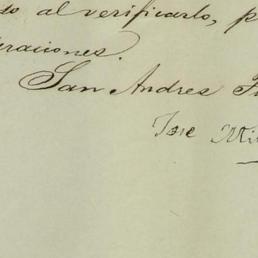 do al verificarlo, p
eraciones.
San Andres
Jose Mi